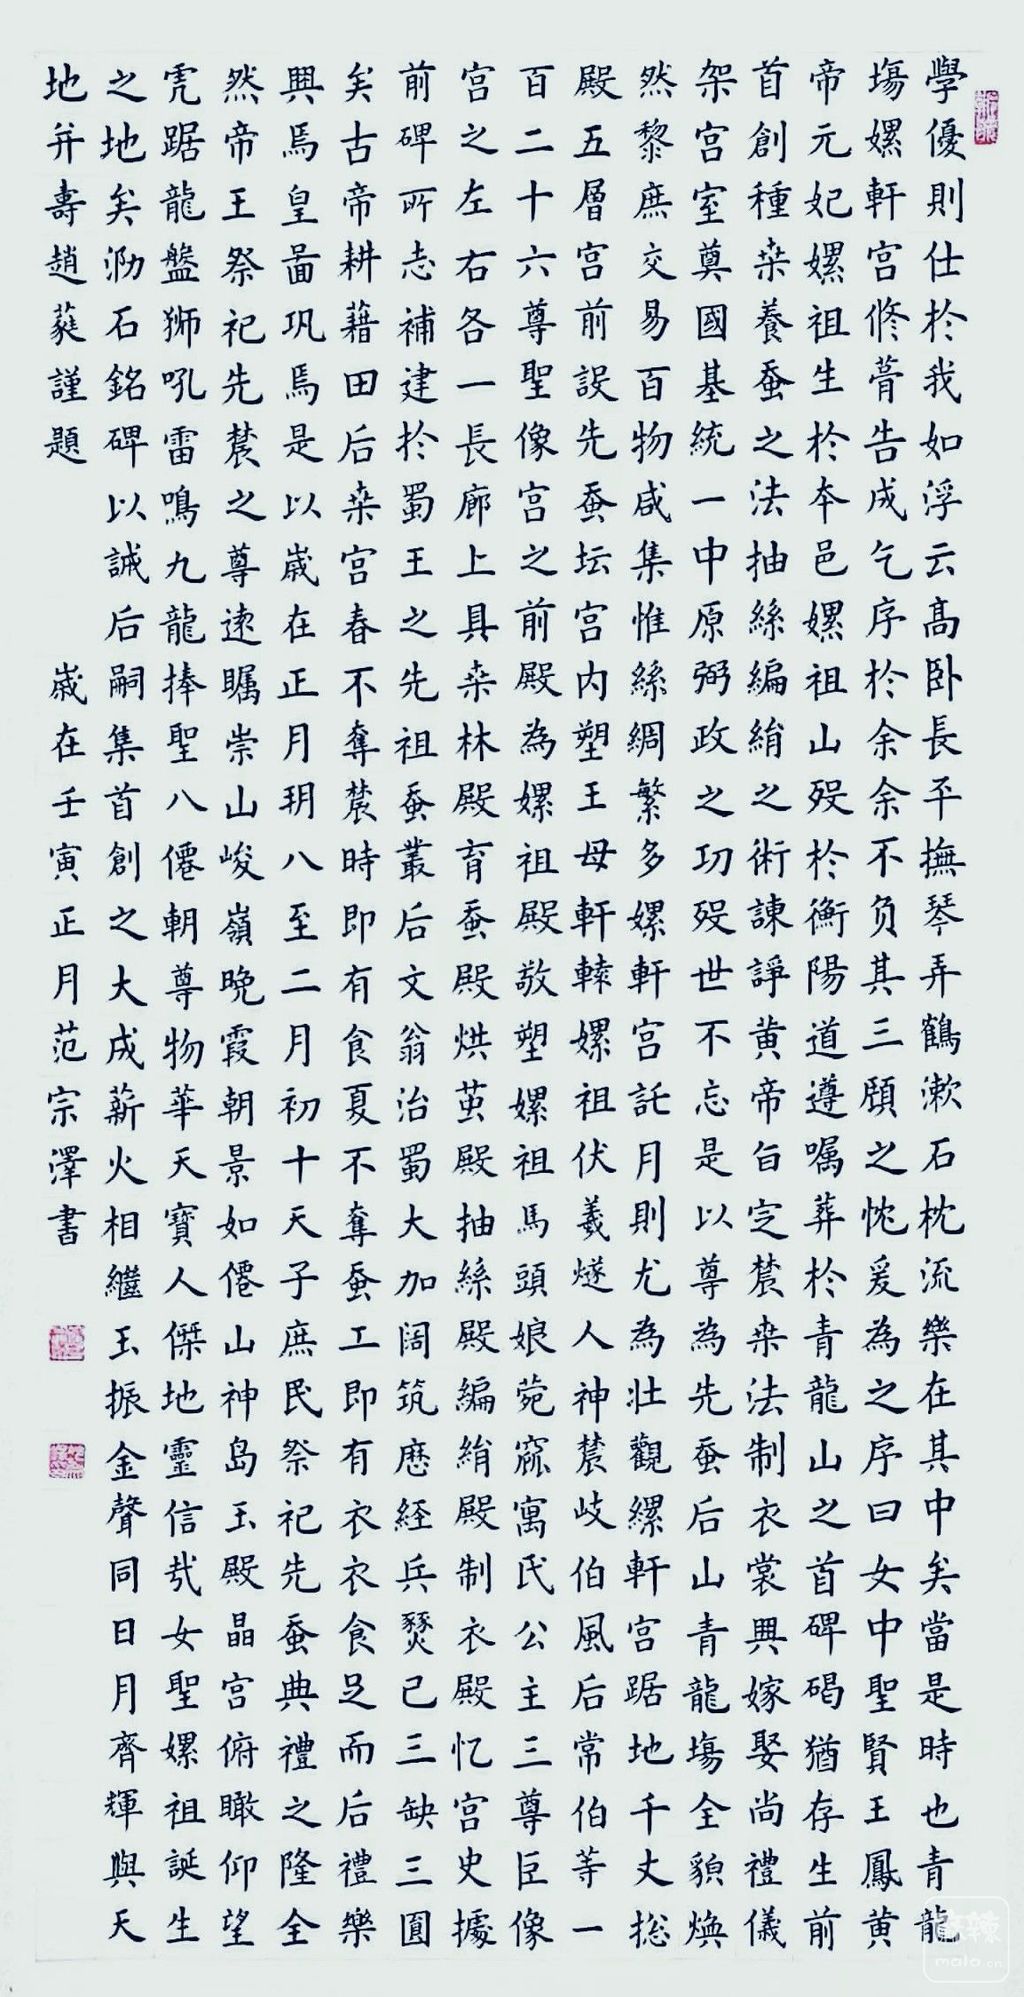 學優則仕於我如浮云高卧長平撫琴弄鶴漱石枕流樂在其中矣當是時也青龍
塲嫘軒宮修膋告成乞序於余余不负其三頋之忱爰為之序曰女中聖賢王鳳黄
帝元妃嫘祖生於本邑嫘祖山殁於衡陽道遵嘱葬於青龍山之首碑碣猶存生前
首創種桒養蚕之法抽絲編絹之術諫諍黄帝旨定農桒法制衣裳興嫁娶尚禮儀
架宮室奠國基統一中原弼政之功殁世不忘是以尊為先蚕后山青龍塲全貌煥
然黎庶交易百物咸集惟絲綢繁多嫘軒宮託月則尤為壮觀縲軒宮踞地千丈捴
殿五層宮前設先蚕坛宮内塑王母軒轅嫘祖伏羲燧人神農岐伯風后常伯等一
百二十六尊聖像宮之前殿為嫘祖殿敬塑嫘祖馬頭娘菀窳寓氏公主三尊臣像
宮之左右各一長廊上具桒林殿育蚕殿烘茧殿抽絲殿編絹殿制衣殿忆宮史據
前碑所志補建於蜀王之先祖蚕叢后文翁治蜀大加阔筑歷经兵燹已三缺三圓
矣古帝耕藉田后桒宮春不奪農時即有食夏不奪蚕工即有衣衣食足而后禮樂
興焉皇啚巩焉是以嵗在正月玥八至二月初十天子庶民祭祀先蚕典禮之隆全
然帝王祭祀先農之尊逺矚崇山峻嶺晚霞朝景如僊山神岛玉殿晶宮俯瞰仰望
虎踞龍盤狮吼雷鳴九龍捧聖八僊朝尊物華天寶人傑地靈信㢤女聖嫘祖誕生
之地矣泐石銘碑以誡后嗣集首創之大成薪火相繼玉振金聲同日月齊輝與天
地并壽趙蕤謹題 嵗在壬寅正月范宗澤書
麻辣
mala.cn